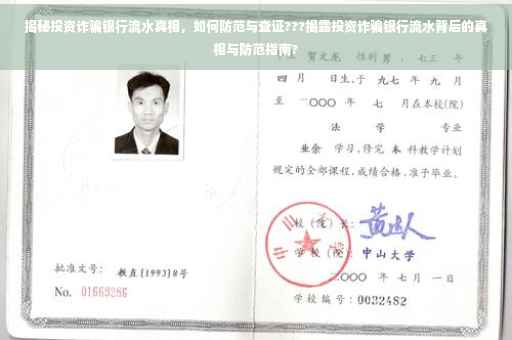 揭秘投资诈骗银行流水真相，如何防范与查证???揭露投资诈骗银行流水背后的真
相与防范指南?
贺文龙 性别 男，七三 年
四 月 日生，于 九七 年 九 月
至 二〇〇〇 年 七 月在本校(院)
法 学 专业
业余 学习，修完 本 科教学计划
规定的全部课程，成绩合格，准予毕业。
校（院）长：
学 校（院）：中山大学
二〇〇〇 年 七 月 一 日
学校编号：0032482
批准文号：教直[1993]8号
No. 01669286
中山大学